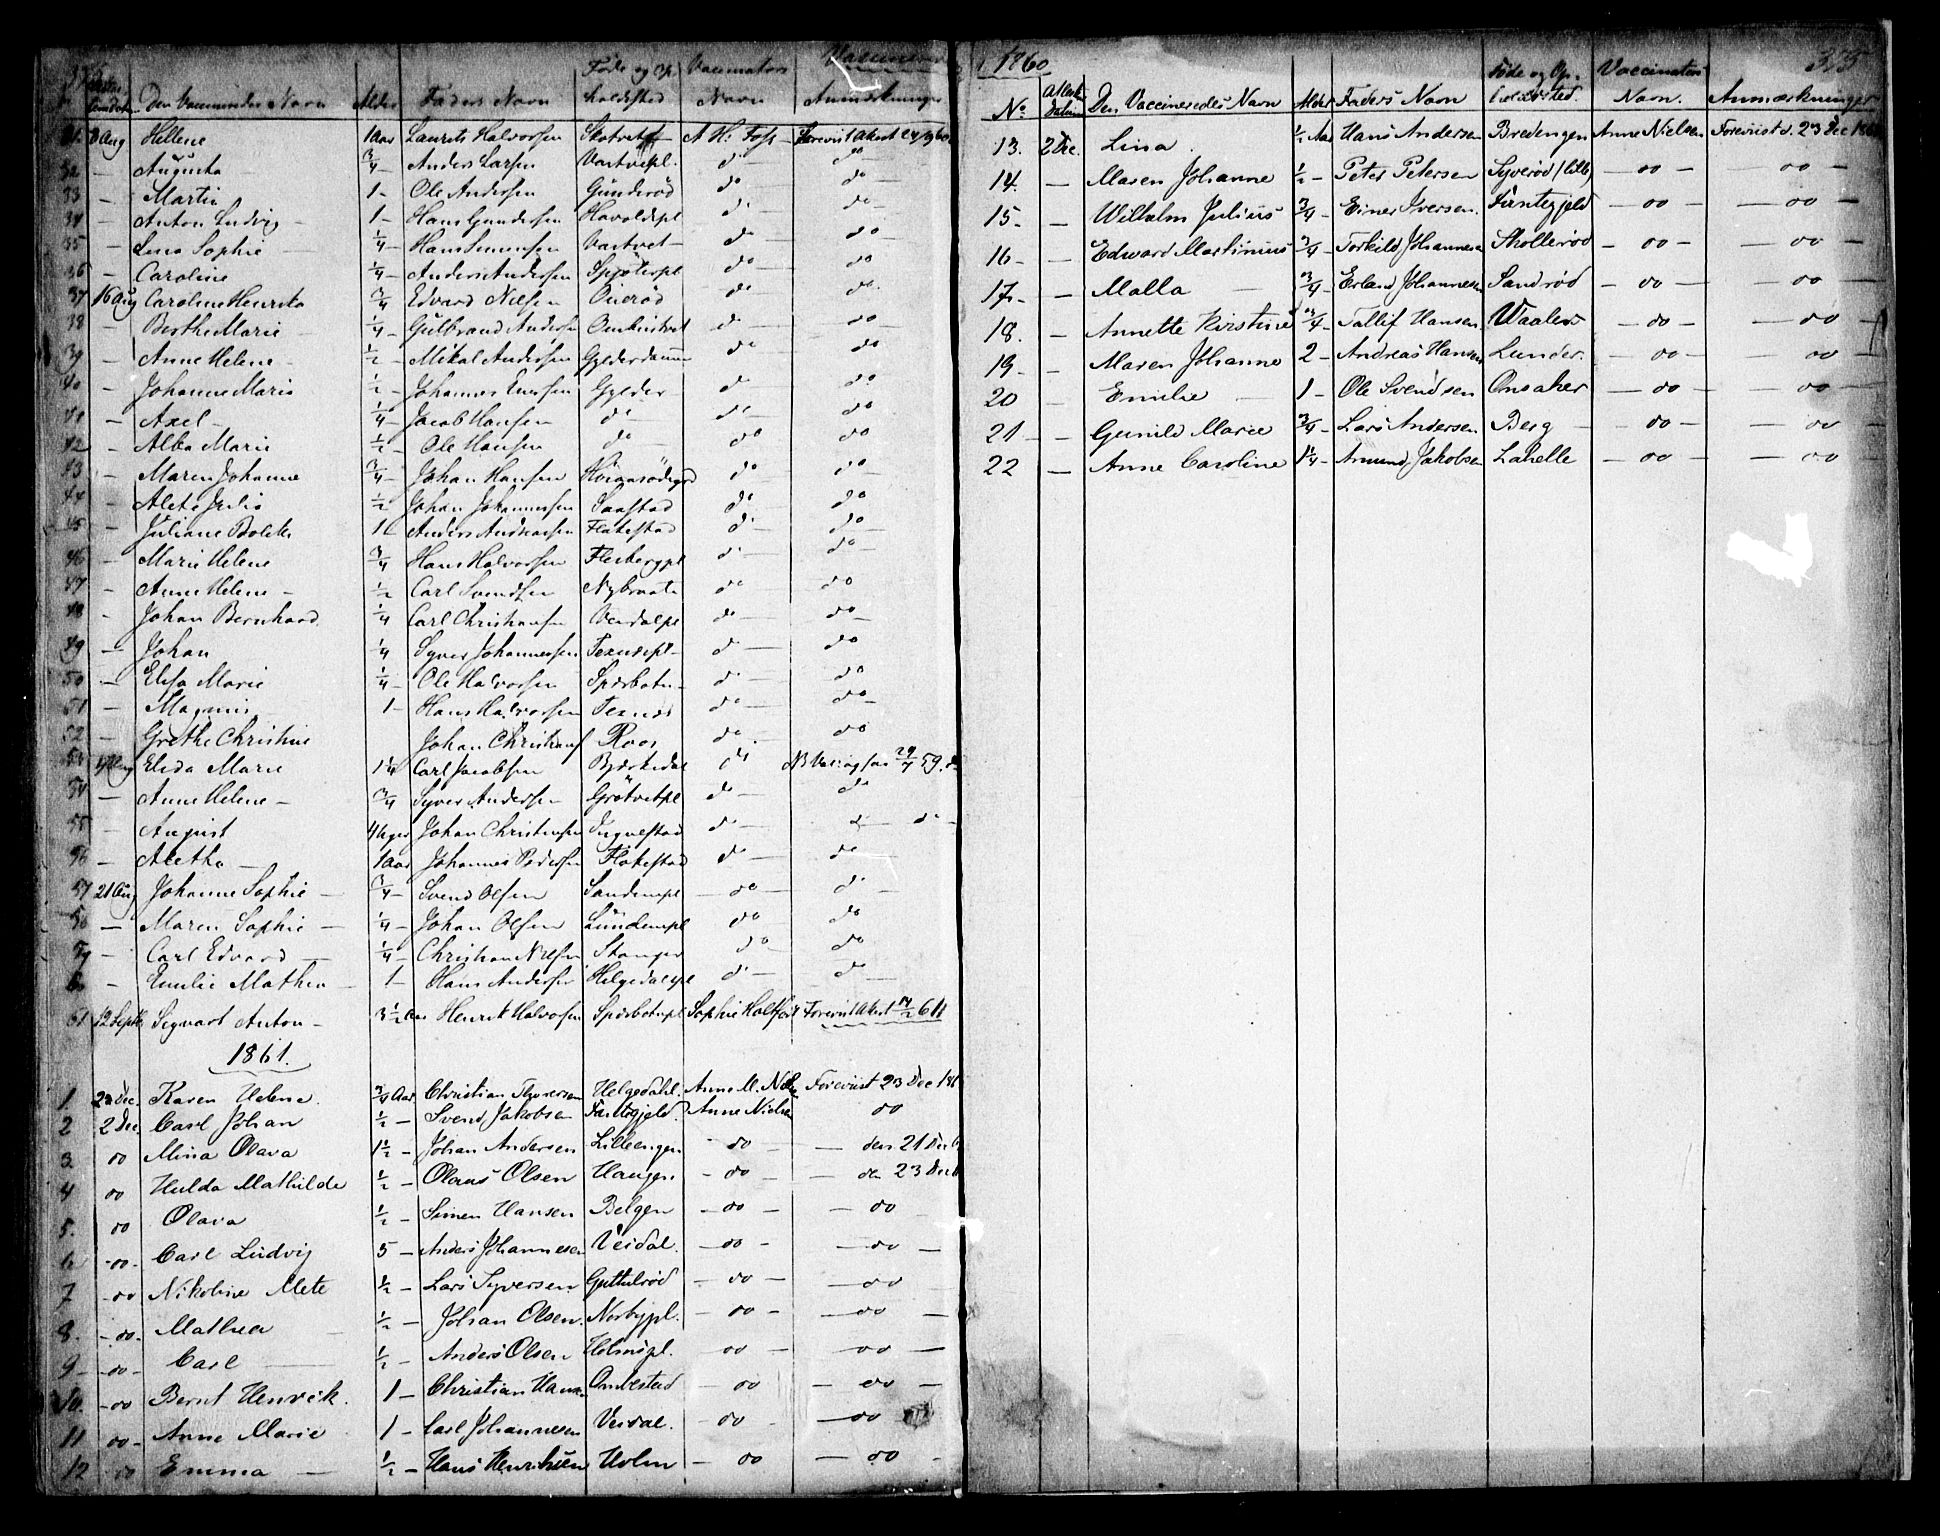 Vaccinerede
Attest datum Den Vaccineredes Navn Alder Faders Navn Føde og Op holdssted Vaccinators Navn Anmærkninger
31 8 Aug Hellene 1 Aar Laurits Halvorsen A H. Foss Forevist Attest
32 — Augusta 3/4 — Anders Larsen Vartvetpl. do do
33 — Martin 1 — Ole Andersen Günderød do do
34 — Anton Ludvig 1 — Hans Gundersen Haroldspl do do
35 — Lena Sophie 1/4 — Hans Simensen Vartvet do do
36 — Caroline 1/4 — Anders Andersen do do
37 16 Aug Caroline Henrika 3/4 Edvard Nielsen Onerød do do
38 — Berthe Marie 1/4 — Gulbrand Andersen do do
39 — Anne Helene 1/2 — Mikal Andersen Gylderdammen do do
40 — Johanne Marie 1/2 — Johannes Evensen Gylder do do
41 — Axel 1/4 — Jacob Hansen do do do
42 — Alba Marie 1/2 — Ole Hansen do do do
43 — Maren Johanne 3/4 — Johan Hansen do do
44 — Alete Julie 1/2 Johan Johannessen Saastad do do
45 — Juliane Bolette 1 Anders Andreassen Flakestad do do
46 — Marie Helene 3/4 Hans Halvorsen Flesbergpl do do
47 — Anne Helene 1/2 Carl Svendsen Nybraate do do
48 — Johan Bernhard 1/4 Carl Christiansen Verdalpl do do
49 — Johan 1/4 Syver Johannessen Texnespl do do
50 — Elisa Marie 1/4 — Ole Halvorsen Spærbotn do do
51 — Magnus 1 — Hans Halvorsen Texnes do do
52 — Grethe Christine Johan Christians Roos do do
53 Aug Elida Marie 1 1/4 Carl Jacobsen Bjerkedal do
54 — Anne Helene 3/4 Syver Andersen Grøtvetpl do do
55 — August 4 Uger Johan Christensen Ingvestad do do
56 — Aletha 1 Aar Johannes Pedersen Flakestad do do
57 21 Aug Johanne Sophie 3/4 — Svend Olsen Sandempl — do do
58 — Maren Sophie 1/4 — Johan Olsen Sündempl do do
59 — Carl Edvard 1/4 — Christian Nilsen Stanger do do
60 — Emilie Mathea 1 — Hans Andersen Helgedalspl do do
61 12 Septb Sigvart Anton 3 1/2 Aar Henrik Halvorsen Spærbotnpl Sophie Holtfodt Forevist Attest 14/2 61
1861.
1. 23 Dec. Karen Helene. 3/4 Aar Christian Thoresen Helgedahl. Anne M. Nielsen Foreviist 23 Dec 186
2 2 Dec. Carl Johan 1/2 — Svend Jakobsen Fantegjeld. Anne Nielsen do
3 do Mina Olava 1 1/2 — Johan Andersen Lilleengen — do — den 21 Dec
4 do Hulda Mathilde 1/2 — Olaus Olsen Haugen — do — den 23 Dec
5. do Olava 1/2 — Simen Hansen Belgen — do — — do
6 — do — Carl Ludvig 5 — Anders Johannesen Veidal. — do — — do —
7 — do Nikoline Mete 1/2 — Lars Syversen Guttulrød — do — — do
8. — do — Mathea 1/2 — Johan Olsen. Norbypl. — do — — do —
9 — — do — Carl 1/2 — Anders Olsen Holmspl. — do — do —
10. — do Bernt Henrik. 1 — Christian Hansen Ombestad — do — do —
11 do — Anne Marie 1 — Carl Johannesen Veidal. — do — do
12 do Emma — 1/2 — Hans Henriksen Holm — do — do —
1860
375
No Attest datum Den Vaccineredes Navn Alder Faders Navn Føde og Op- holdssted. Vaccinators Navn. Anmærkninger
13. 2 Dec. Lina. 1/2 Aar Hans Andersen Bredengen Anne Nielsen Foreviist d. 23 Dec 186
14. — Maren Johanne 1/2 — Peter Petersen Syverød (lille) — do — — do —
15 — — Wilhelm Julius 3/4 — Einer Iversen. Fantegjeld — do — — do —
16 — — Edward Martinius 3/4 — Torkild Johannesen Skollerød — do — — do —
17 — — Malla — 3/4 — Erland Johannesen Sandrød — do — — do —
18. — Annette Kirstine 3/4 — Tallif Hansen. Waaler — do — — do —
19 — — Maren Johanne 2 — Andreas Hansen Lunder. — do — — do
20 — Emilie — 1 — Ole Svendsen Onsaker — do — — do
21 — — Gunild Marie 3/4 — Lars Andersen Berg — — do — — do —
22 — Anne Caroline 1 1/4 — Amund Jakobsen Lahelle — do — — do —